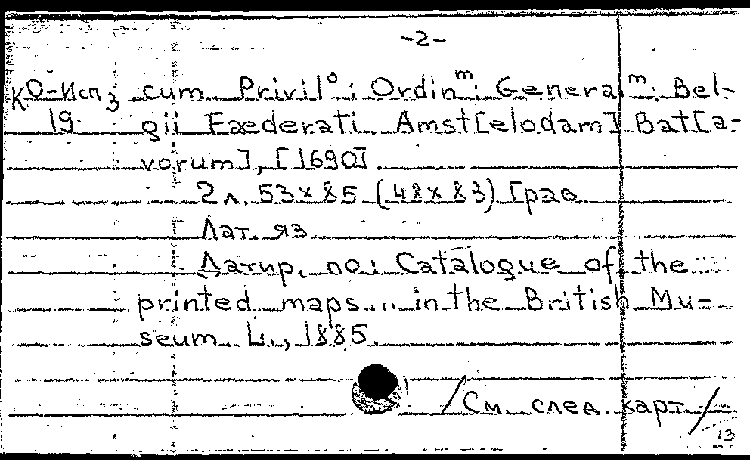 -2-
КО-Исп 3 cum Privil°: Ordinᵐ: Generalᵐ: Bel-
19 gii Fæderati. Amst[elodam] Bat[a-
vorum], [1690]
2 л. 53×85 (48×83) Грав
Лат. яз.
Датир. по: Catalogue of the
printed maps... in the British Mu-
seum L., 1885.
/См. след. карт./
13